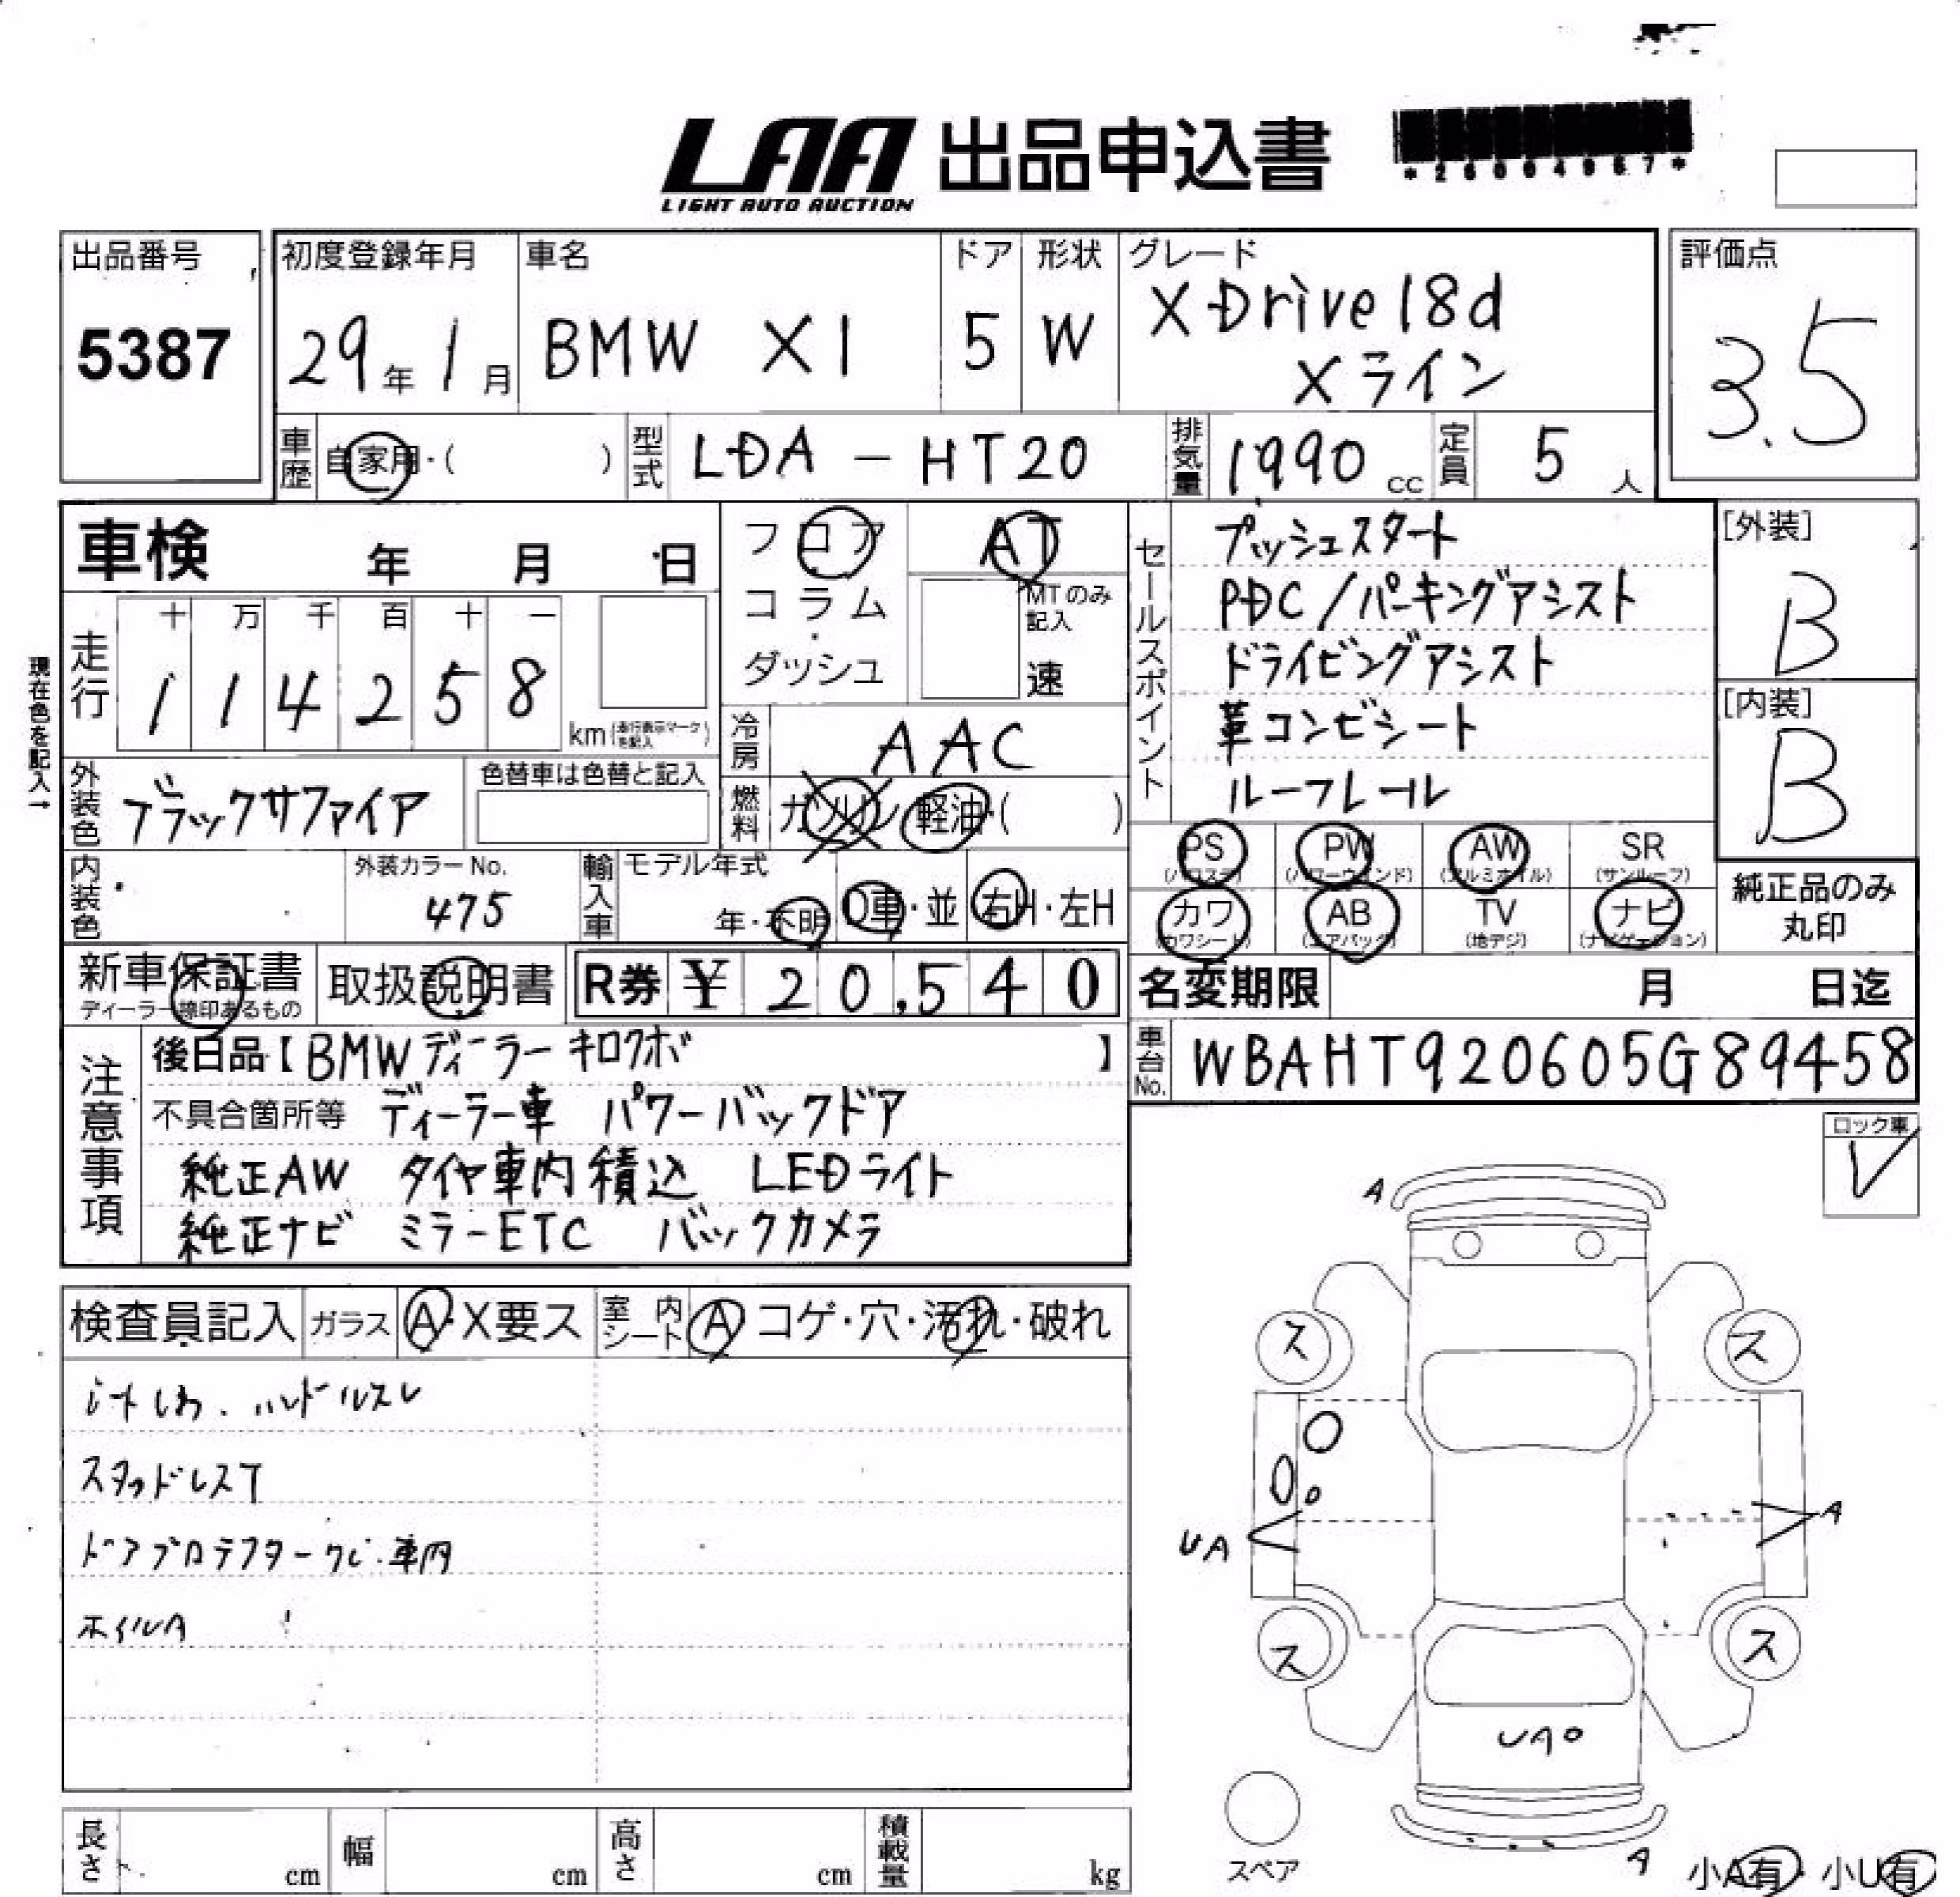 LAA 出品申込書
LIGHT AUTO AUCTION
出品番号
5387
初度登録年月
29年 1月
車名
BMW X1
ドア
5
形状
W
グレード
XDrive18d
Xライン
評価点
3.5
車歴 自家用・( )
型式 LDA-HT20
排気量 1990 cc
定員 5 人
車検 年 月 日
フロア
コラム
ダッシュ
AT
MTのみ記入
速
セールスポイント
プッシュスタート
PDC/パーキングアシスト
ドライビングアシスト
革コンビシート
ルーフレール
[外装]
B
[内装]
B
現在色を記入→
走行
十 万 千 百 十 一
1 1 4 2 5 8
km(走行表示マークを記入)
冷房 AAC
外装色 ブラックサファイア
色替車は色替と記入
燃料 ガソリン 軽油・( )
内装色
外装カラーNo.
475
輸入車
モデル年式
年・不明
D車・並
右H・左H
PS (パワステ)
PW (パワーウインド)
AW (アルミホイル)
SR (サンルーフ)
カワ (カワシート)
AB (エアバッグ)
TV (地デジ)
ナビ (ナビゲーション)
純正品のみ
丸印
新車保証書
ディーラー線印あるもの
取扱説明書
R券 ¥ 20,540
名変期限 月 日迄
車台No. WBAHT920605G89458
注意事項
後日品【BMWディーラーキロクボ 】
不具合箇所等 ディーラー車 パワーバックドア
純正AW タイヤ車内積込 LEDライト
純正ナビ ミラーETC バックカメラ
ロック車
検査員記入
ガラス A・X要ス
室内シート A コゲ・穴・汚れ・破れ
シートしわ. ハンドルスレ
スタッドレスT
ドアプロテクター 車内
ホイルA
A
ス
ス
UA
A
ス
ス
UA
スペア
A
小A有・小U有
長さ cm
幅 cm
高さ cm
積載量 kg